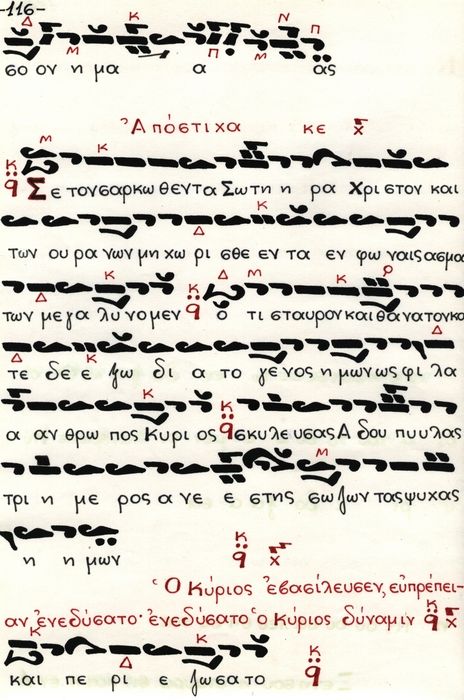 -116-
σο ον η μα α ας
Ἀπόστιχα κε χ
Σε τον σαρκω θεν τα Σω τη η ρα Χρι στον και
των ου ρα νων μη χω ρι σθε εν τα εν φω ναις ασμα
των με γα λυ νο μεν ό τι σταυρον και θα να τον κα
τε δε ε ζω δι α το γε νος η μων ως φι λα
α αν θρω πος Κυρι ος σκυλευσας Α δου πυυλας
τρι η με ρος α νε ε στης σω ζων τας ψυχας
η η μων
Ὁ Κύριος ἐβασίλευσεν, εὐπρέπει-
αν ἐνεδύσατο· ἐνεδύσατο ὁ Κύριος δύναμιν
και πε ρι ε ζωσα το